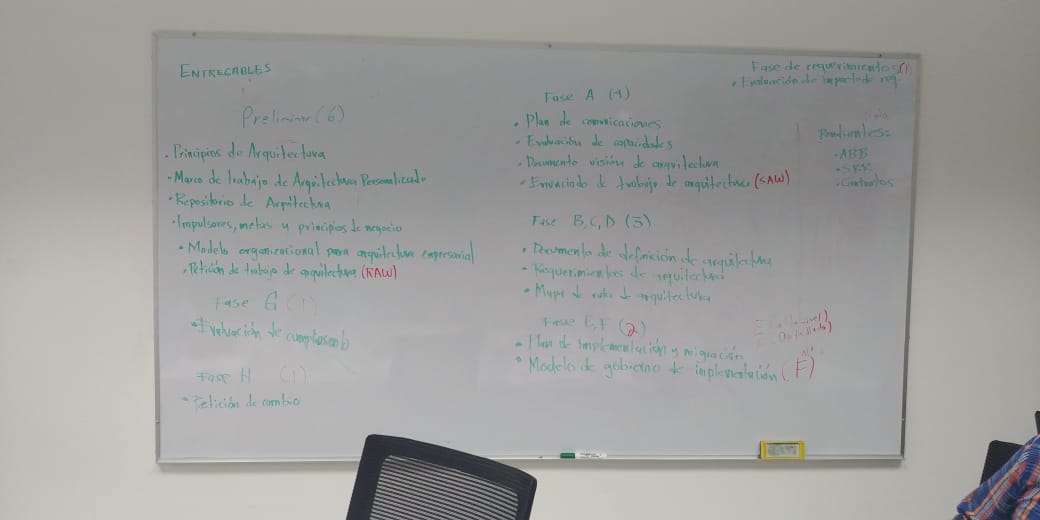 ENTREGABLES
Preliminar (6)
. Principios de Arquitectura
• Marco de trabajo de Arquitectura Personalizado
• Repositorio de Arquitectura
• Impulsores, metas y principios de negocio
• Modelo organizacional para arquitectura empresarial
• Petición de trabajo de arquitectura (RAW)
Fase G (1)
• Evaluación de cumplimiento
Fase H (1)
• Petición de cambio
Fase A (4)
• Plan de comunicaciones
• Evaluación de capacidades
• Documento visión de arquitectura
• Enunciado de trabajo de arquitectura (SAW)
Fase B, C, D (3)
• Documento de definición de arquitectura
- Requerimientos de arquitectura
• Mapa de ruta de arquitectura
Fase E, F (2)
• Plan de implementación y migración
• Modelo de gobierno de implementación (F)
Fase de requerimientos (1)
• Evaluación de impacto de req.
Pendientes:
- ABB
- SBB
- Contratos